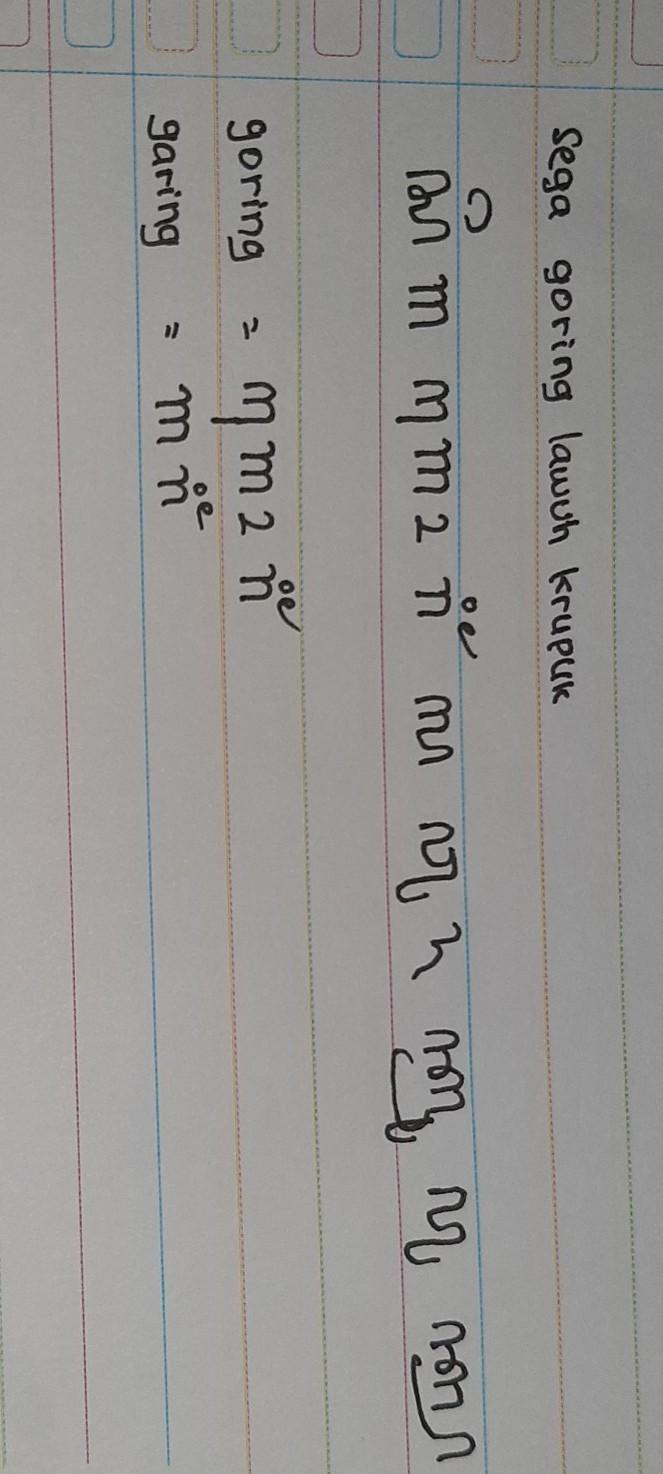 Sega goring lawuh krupuk
ꦱꦼꦒꦒꦺꦴꦫꦶꦁꦭꦮꦸꦃꦏꦿꦸꦥꦸꦏ꧀
goring = ꦒꦺꦴꦫꦶꦁ
garing = ꦒꦫꦶꦁ